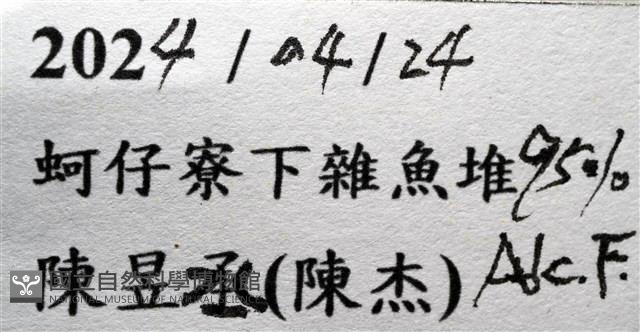 2024/04/24
蚵仔寮下雜魚堆95%
陳昱丞(陳杰) Alc.F.
國立自然科學博物館
NATIONAL MUSEUM OF NATURAL SCIENCE